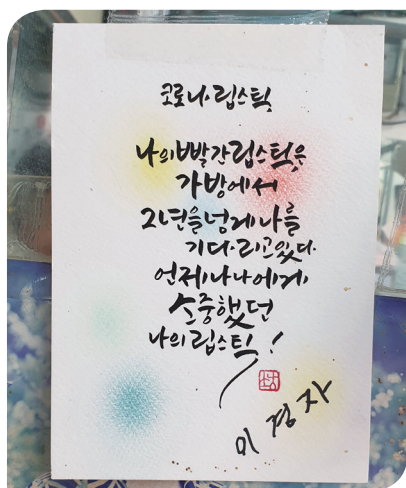 코로나 립스틱
나의 빨간 립스틱은
가방에서
2년을 넘게 나를
기다리고 있다
언제나 나에게
소중했던
나의 립스틱!
이경자